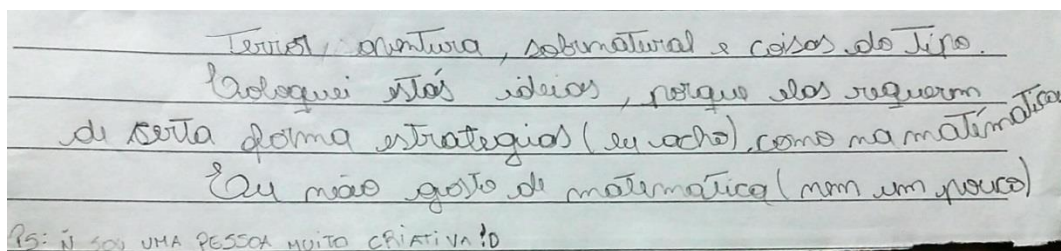 Terror, aventura, sobrnatural e coisas do tipo.
Coloquei estás ideias, porque elas requerem
de certa forma estrategias (eu acho), como na matímatica
Eu não gosto de matematica (nem um pouco)
PS: Ñ SOU UMA PESSOA MUITO CRIATIVA!D